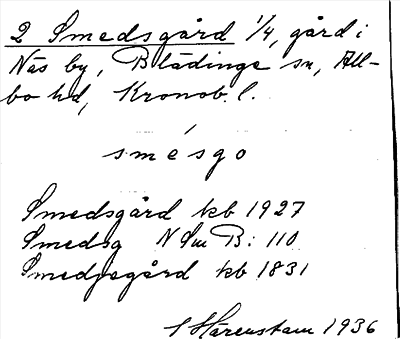 2 Smedsgård 1/4, gård i
Näs by, Blädinge sn, All-
bo hd, Kronob. l.
smésgo
Smedsgård kb 1927
Smedsg N Sm B: 110
Smedjegård kb 1831
Härenstam 1936